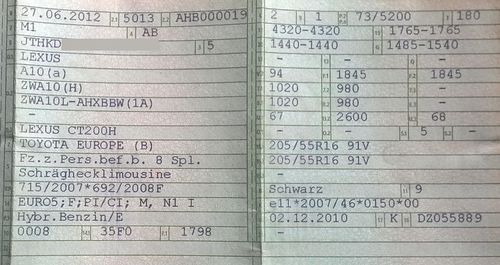 27.06.2012 5013 AHB000019
M1 AB
JTHKD 5
LEXUS
A10(a)
ZWA10(H)
ZWA10L-AHXBBW(1A)
-
LEXUS CT200H
TOYOTA EUROPE (B)
Fz.z.Pers.bef.b. 8 Spl.
Schräghecklimousine
715/2007*692/2008F
EURO5;F;PI/CI; M, N1 I
Hybr.Benzin/E
0008 35F0 1798
2 1 73/5200 180
4320-4320 1765-1765
1440-1440 1485-1540
- - -
94 1845 1845
1020 980
1020 980
67 2600 68
- - 5 -
205/55R16 91V
205/55R16 91V
-
Schwarz 9
e11*2007/46*0150*00
02.12.2010 K DZ055889
-